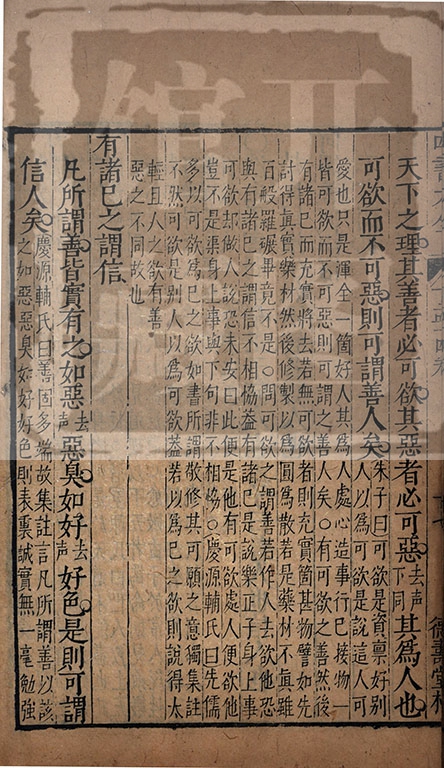 天下之理其善者必可欲其惡者必可惡去聲下同其為人也
可欲而不可惡則可謂善人矣朱子曰可欲是資稟好別人以為可欲是說這人可
愛也只是渾全一箇好人其為人處心造事行已接物一
皆可欲而不可惡則可謂之善人矣○有可欲之善然後
有諸已而充實將去若無可欲者則充實箇甚物譬如先
討得真實藥材然後修製以為圓為散若是藥材不真雖
百般羅碾畢竟不是○問可欲之謂善若作人去欲他恐
與有諸已之謂信不相協益有諸已是說樂正子身上事
可欲却做人說恐未安曰此便是他有可欲處人便欲他
豈不是渠身上事與下句非不相協○慶源輔氏曰先儒
多以可欲為已之欲如書所謂敬修其可願之意獨集註
不然可欲是別人以為可欲盖若以為已之欲則說得太
輕且人之欲有善
惡之不同故也
有諸已之謂信
凡所謂善皆實有之如惡去聲惡臭如好去聲好色是則可謂
信人矣慶源輔氏曰善固多端故集註言凡所謂善以該之如惡惡臭如好好色則表裏誠實無一毫勉強